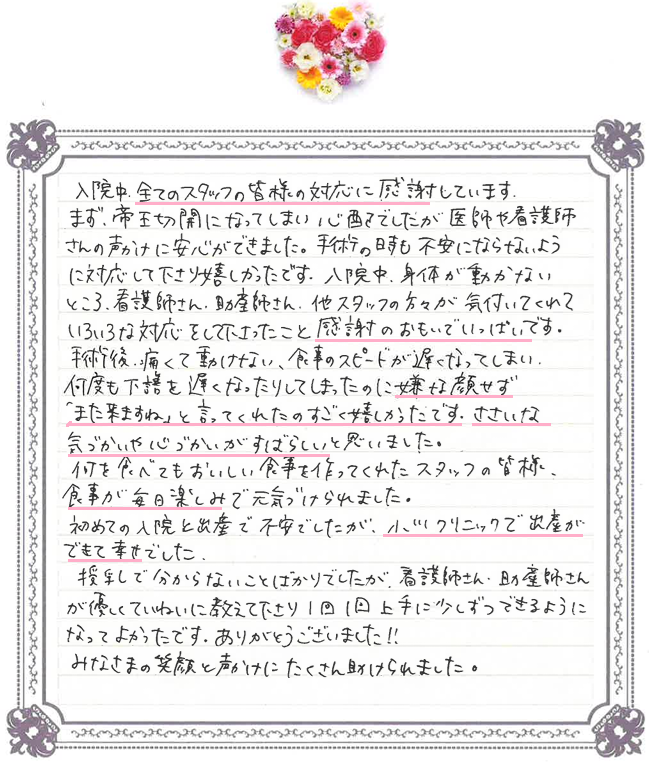 入院中、全てのスタッフの皆様の対応に感謝しています。
まず、帝王切開になってしまい心配でしたが医師や看護師
さんの声かけに安心ができました。手術の時も不安にならないよう
に対応して下さり嬉しかったです。入院中、身体が動かない
ところ、看護師さん、助産師さん、他スタッフの方々が気付いてくれて
いろいろな対応をして下さったこと感謝のおもいでいっぱいです。
手術後、痛くて動けない、食事のスピードが遅くなってしまい、
何度も下膳を遅くなったりしてしまったのに嫌な顔せず
「また来ますね」と言ってくれたのすごく嬉しかったです。ささいな
気づかいや心づかいがすばらしいと思いました。
何を食べてもおいしい食事を作ってくれたスタッフの皆様、
食事が毎日楽しみで元気づけられました。
初めての入院と出産で不安でしたが、小川クリニックで出産が
できて幸せでした。
授乳しで分からないことばかりでしたが、看護師さん、助産師さん
が優しくていねいに教えて下さり1回1回上手に少しずつできるように
なってよかったです。ありがとうございました!!
みなさまの笑顔と声かけにたくさん助けられました。